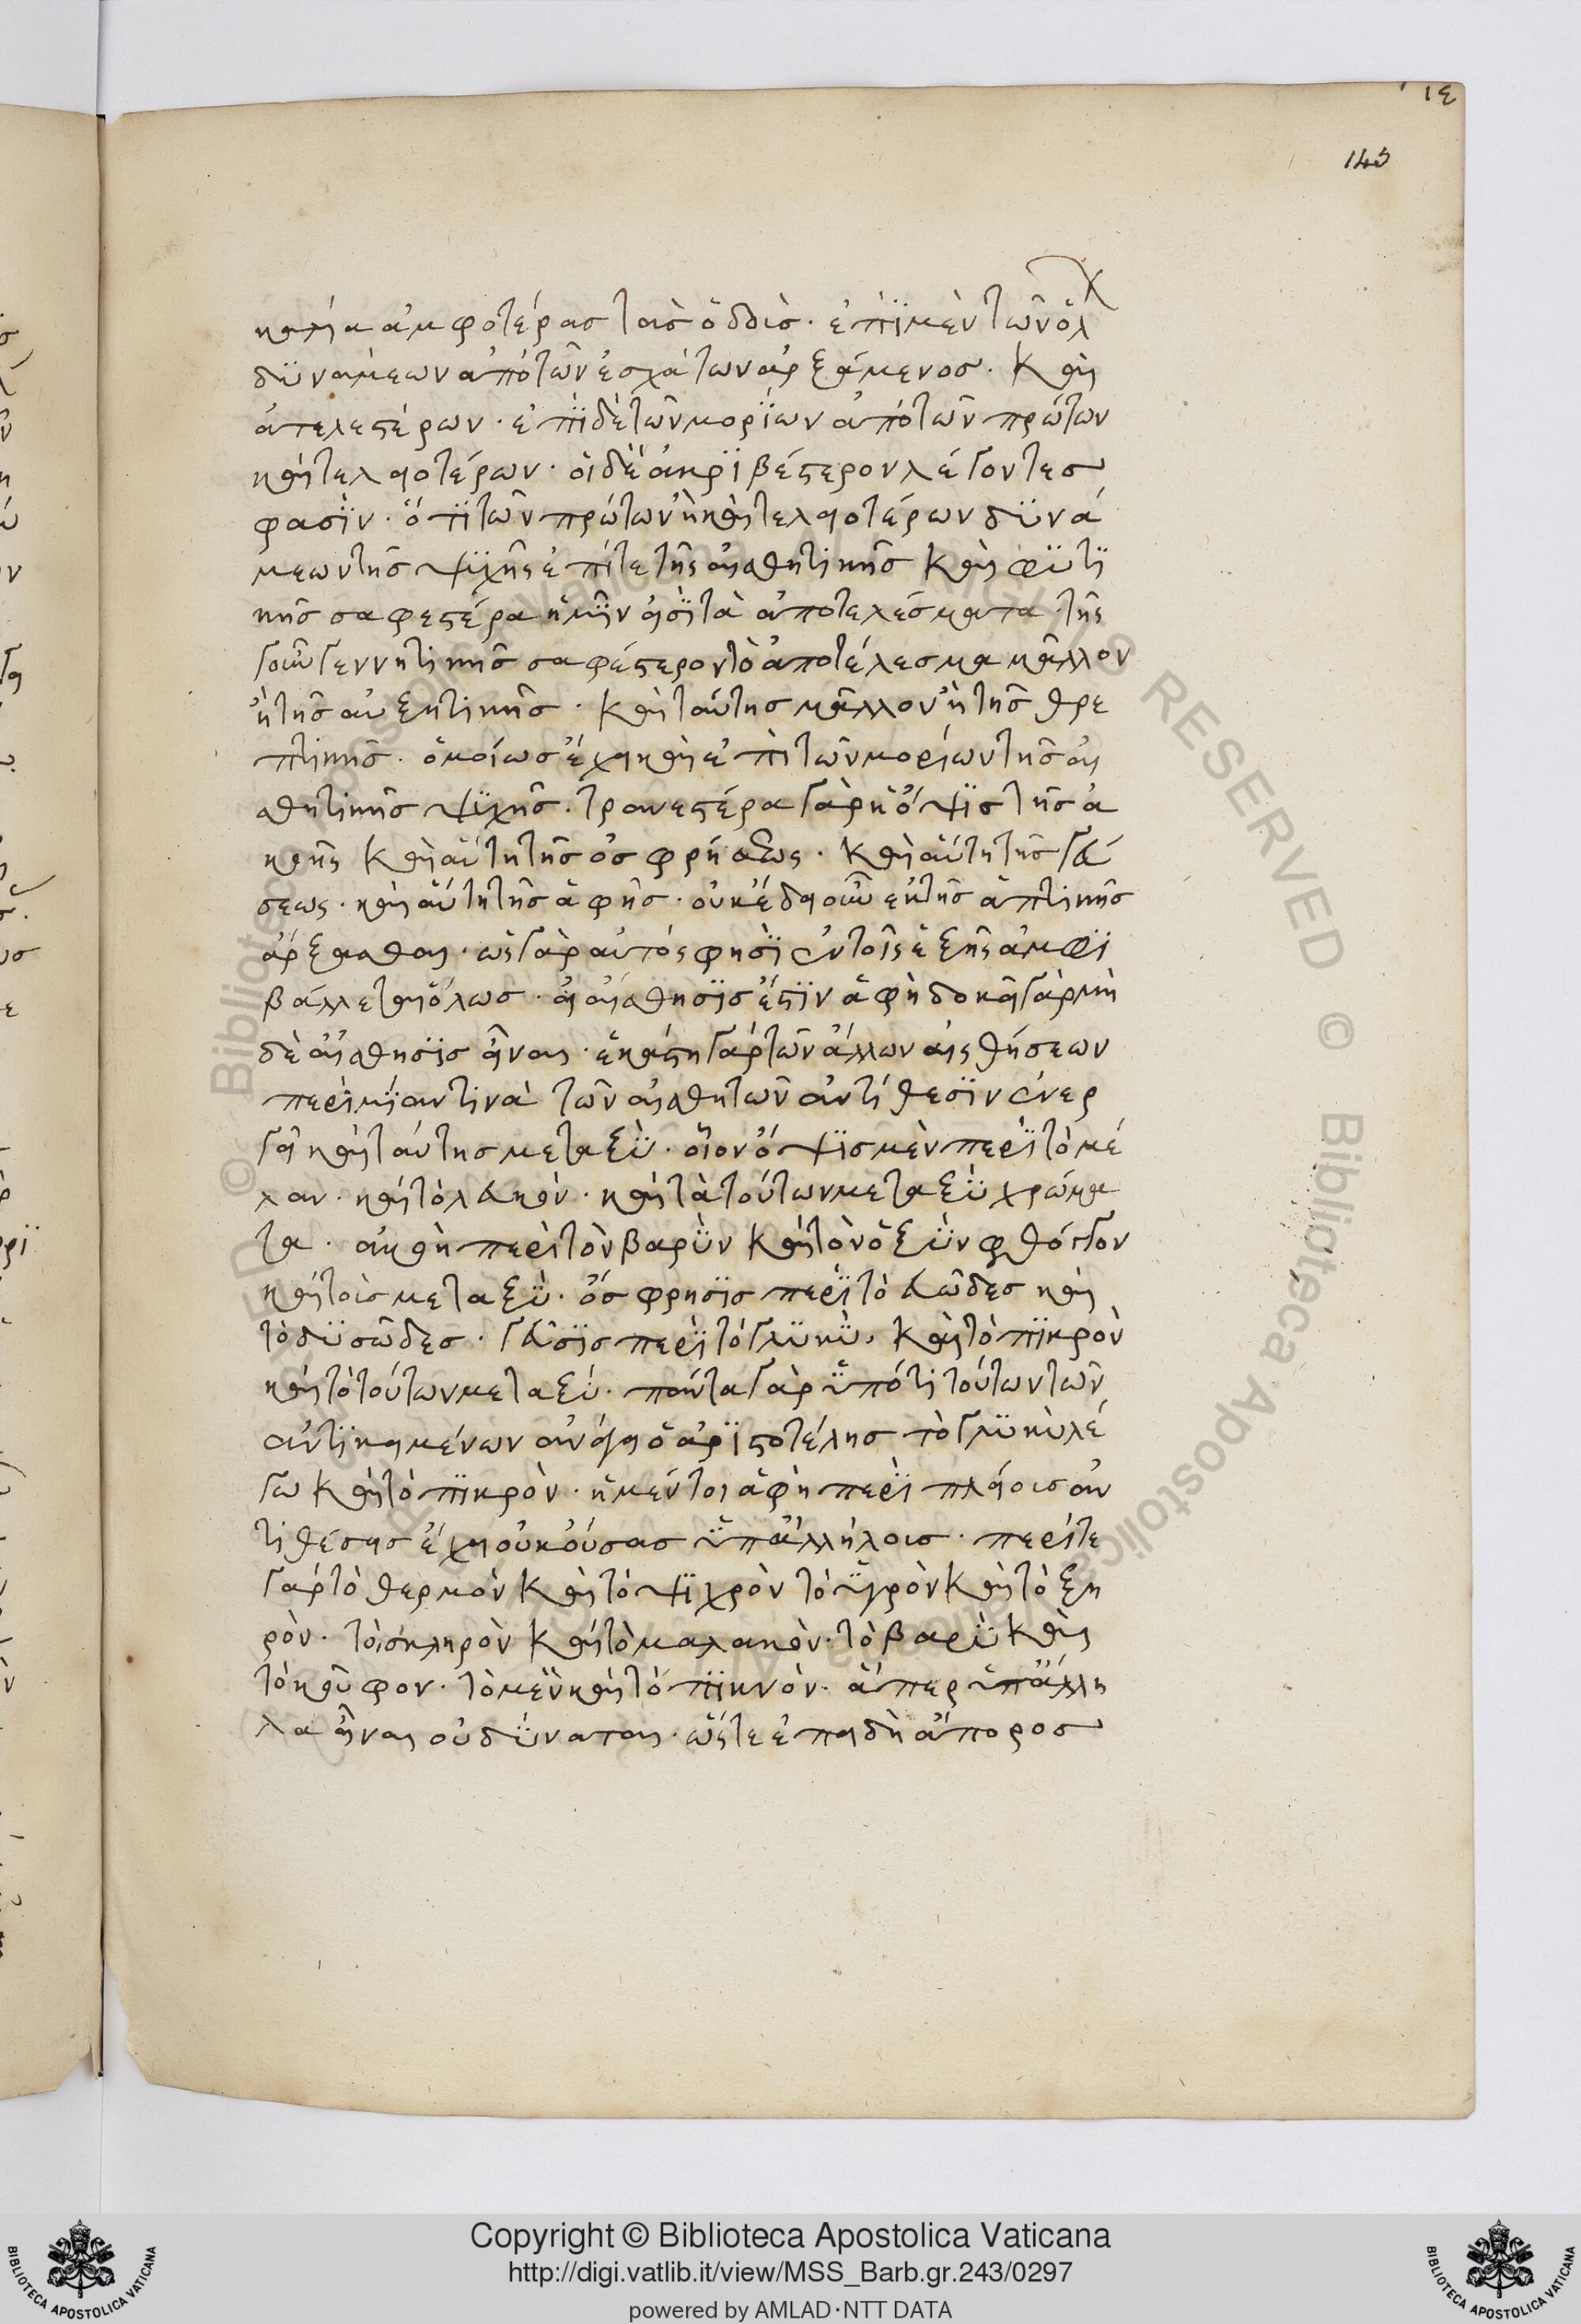 ιε
145
καλεῖ ἀμφοτέρας τὰς ὁδούς· ἐπὶ μὲν τῶν ὅλ
δυνάμεων ἀπὸ τῶν ἐσχάτων ἀρξάμενος· καὶ
ἀτελεστέρων· ἐπὶ δὲ τῶν μορίων ἀπὸ τῶν πρώτων
καὶ τελειοτέρων· οἱ δὲ ἀκριβέστερον λέγοντες
φασὶν· ὅτι τῶν πρώτων ἢ καὶ τελειοτέρων δυνά
μεων τῆς ψυχῆς ἐπί τε τῆς αἰσθητικῆς καὶ φυτι
κῆς σαφεστέρα ἡμῖν εἰσὶ τὰ ἀποτελέσματα· τῆς
γοῦν γεννητικῆς σαφέστερον τὸ ἀποτέλεσμα μᾶλλον
ἢ τῆς αὐξητικῆς· καὶ ταύτης μᾶλλον ἢ τῆς θρε
πτικῆς· ὁμοίως ἔχει καὶ ἐπὶ τῶν μορίων τῆς αἰ
σθητικῆς ψυχῆς· τρανεστέρα γὰρ ἡ ὄψις τῆς ἀ
κοῆς καὶ αὕτη τῆς ὀσφρήσεως· καὶ αὕτη τῆς γεύ
σεως· καὶ αὕτη τῆς ἁφῆς· οὐκ ἔδει οὖν ἐκ τῆς ἁπτικῆς
ἄρξασθαι· ὡς γὰρ αὐτός φησὶ ἐν τοῖς ἑξῆς ἀμφι
βάλλεται ὅλως· εἰ αἴσθησις ἐστὶν ἁφὴ δοκεῖ γὰρ μὴ
δὲ αἴσθησις εἶναι· ἑκάστη γὰρ τῶν ἄλλων αἰσθήσεων
περὶ μίαν τινὰ τῶν αἰσθητῶν ἀντίθεσιν ἐνερ
γεῖ καὶ ταύτης μεταξὺ· οἷον ὄψις μὲν περὶ τὸ μέ
λαν· καὶ τὸ λευκὸν· καὶ τὰ τούτων μεταξὺ χρώμα
τα· ἀκοὴ περὶ τὸν βαρὺν καὶ τὸν ὀξὺν φθόγγον
καὶ τοὺς μεταξὺ· ὄσφρησις περὶ τὸ εὐῶδες καὶ
τὸ δυσῶδες· γεῦσις περὶ τὸ γλυκὺ, καὶ τὸ πικρὸν
καὶ τὸ τούτων μεταξύ· πάντα γὰρ ὑπό τι τούτων τῶν
ἀντικειμένων ἀνάγει ὁ ἀριστοτέλης τὸ γλυκὺ λέ
γω καὶ τὸ πικρὸν· ἡ μέντοι ἁφὴ περὶ πλείους ἀν
τιθέσεις ἔχει οὐκ οὔσας ὑπ' ἀλλήλοις· περί τε
γὰρ τὸ θερμὸν καὶ τὸ ψυχρὸν τὸ ὑγρὸν καὶ τὸ ξη
ρὸν· τὸ σκληρὸν καὶ τὸ μαλακὸν· τὸ βαρὺ καὶ
τὸ κοῦφον· τὸ μὲν καὶ τὸ πυκνὸν· ἅπερ ὑπ' ἄλλη
λα εἶναι οὐ δύναται· ὥστε ἐπειδὴ ἄπορος